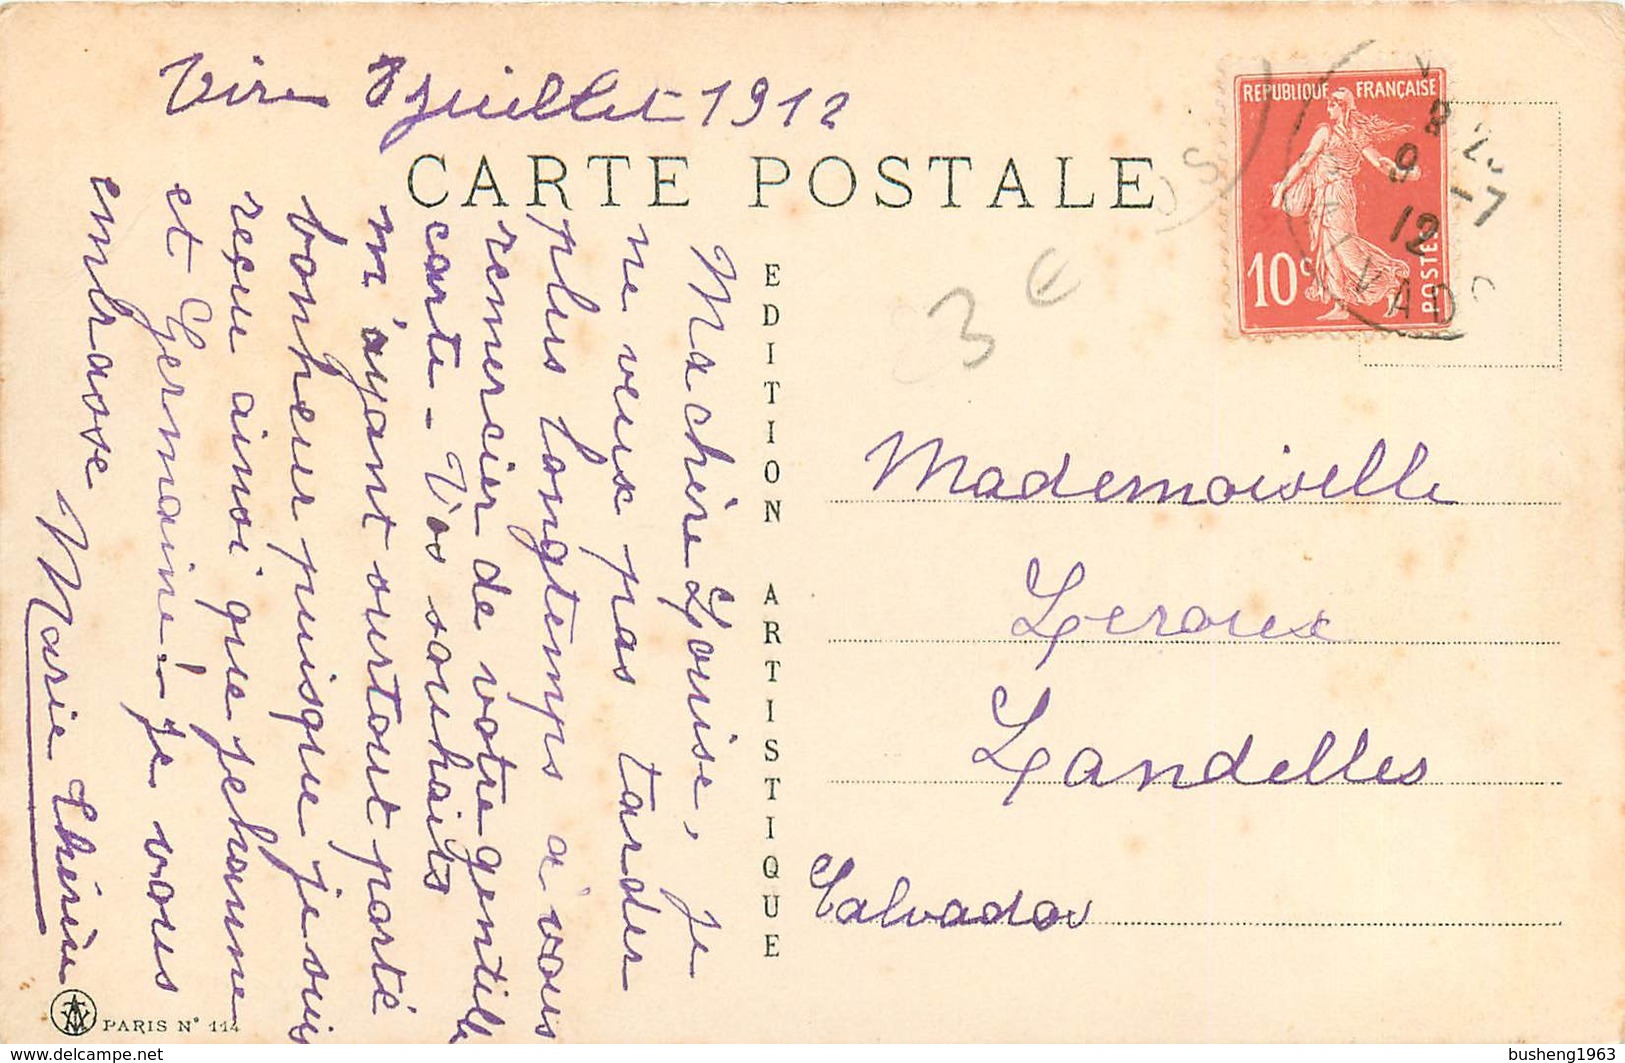 Vire 8 juillet 1912
CARTE POSTALE
Ma chère Louise, je
ne veux pas tarder
plus longtemps à vous
remercier de votre gentille
carte - Vos souhaits
m'ayant surtout porté
bonheur puisque je suis
reçue ainsi que Jehanne
et Germaine! - je vous
embrasse
Marie Thérèse
EDITION ARTISTIQUE
PARIS N° 114
REPUBLIQUE FRANÇAISE
10c
POSTES
9 -7
12
3 €
Mademoiselle
Leroux
Landelles
Calvados
www.delcampe.net
busheng1963